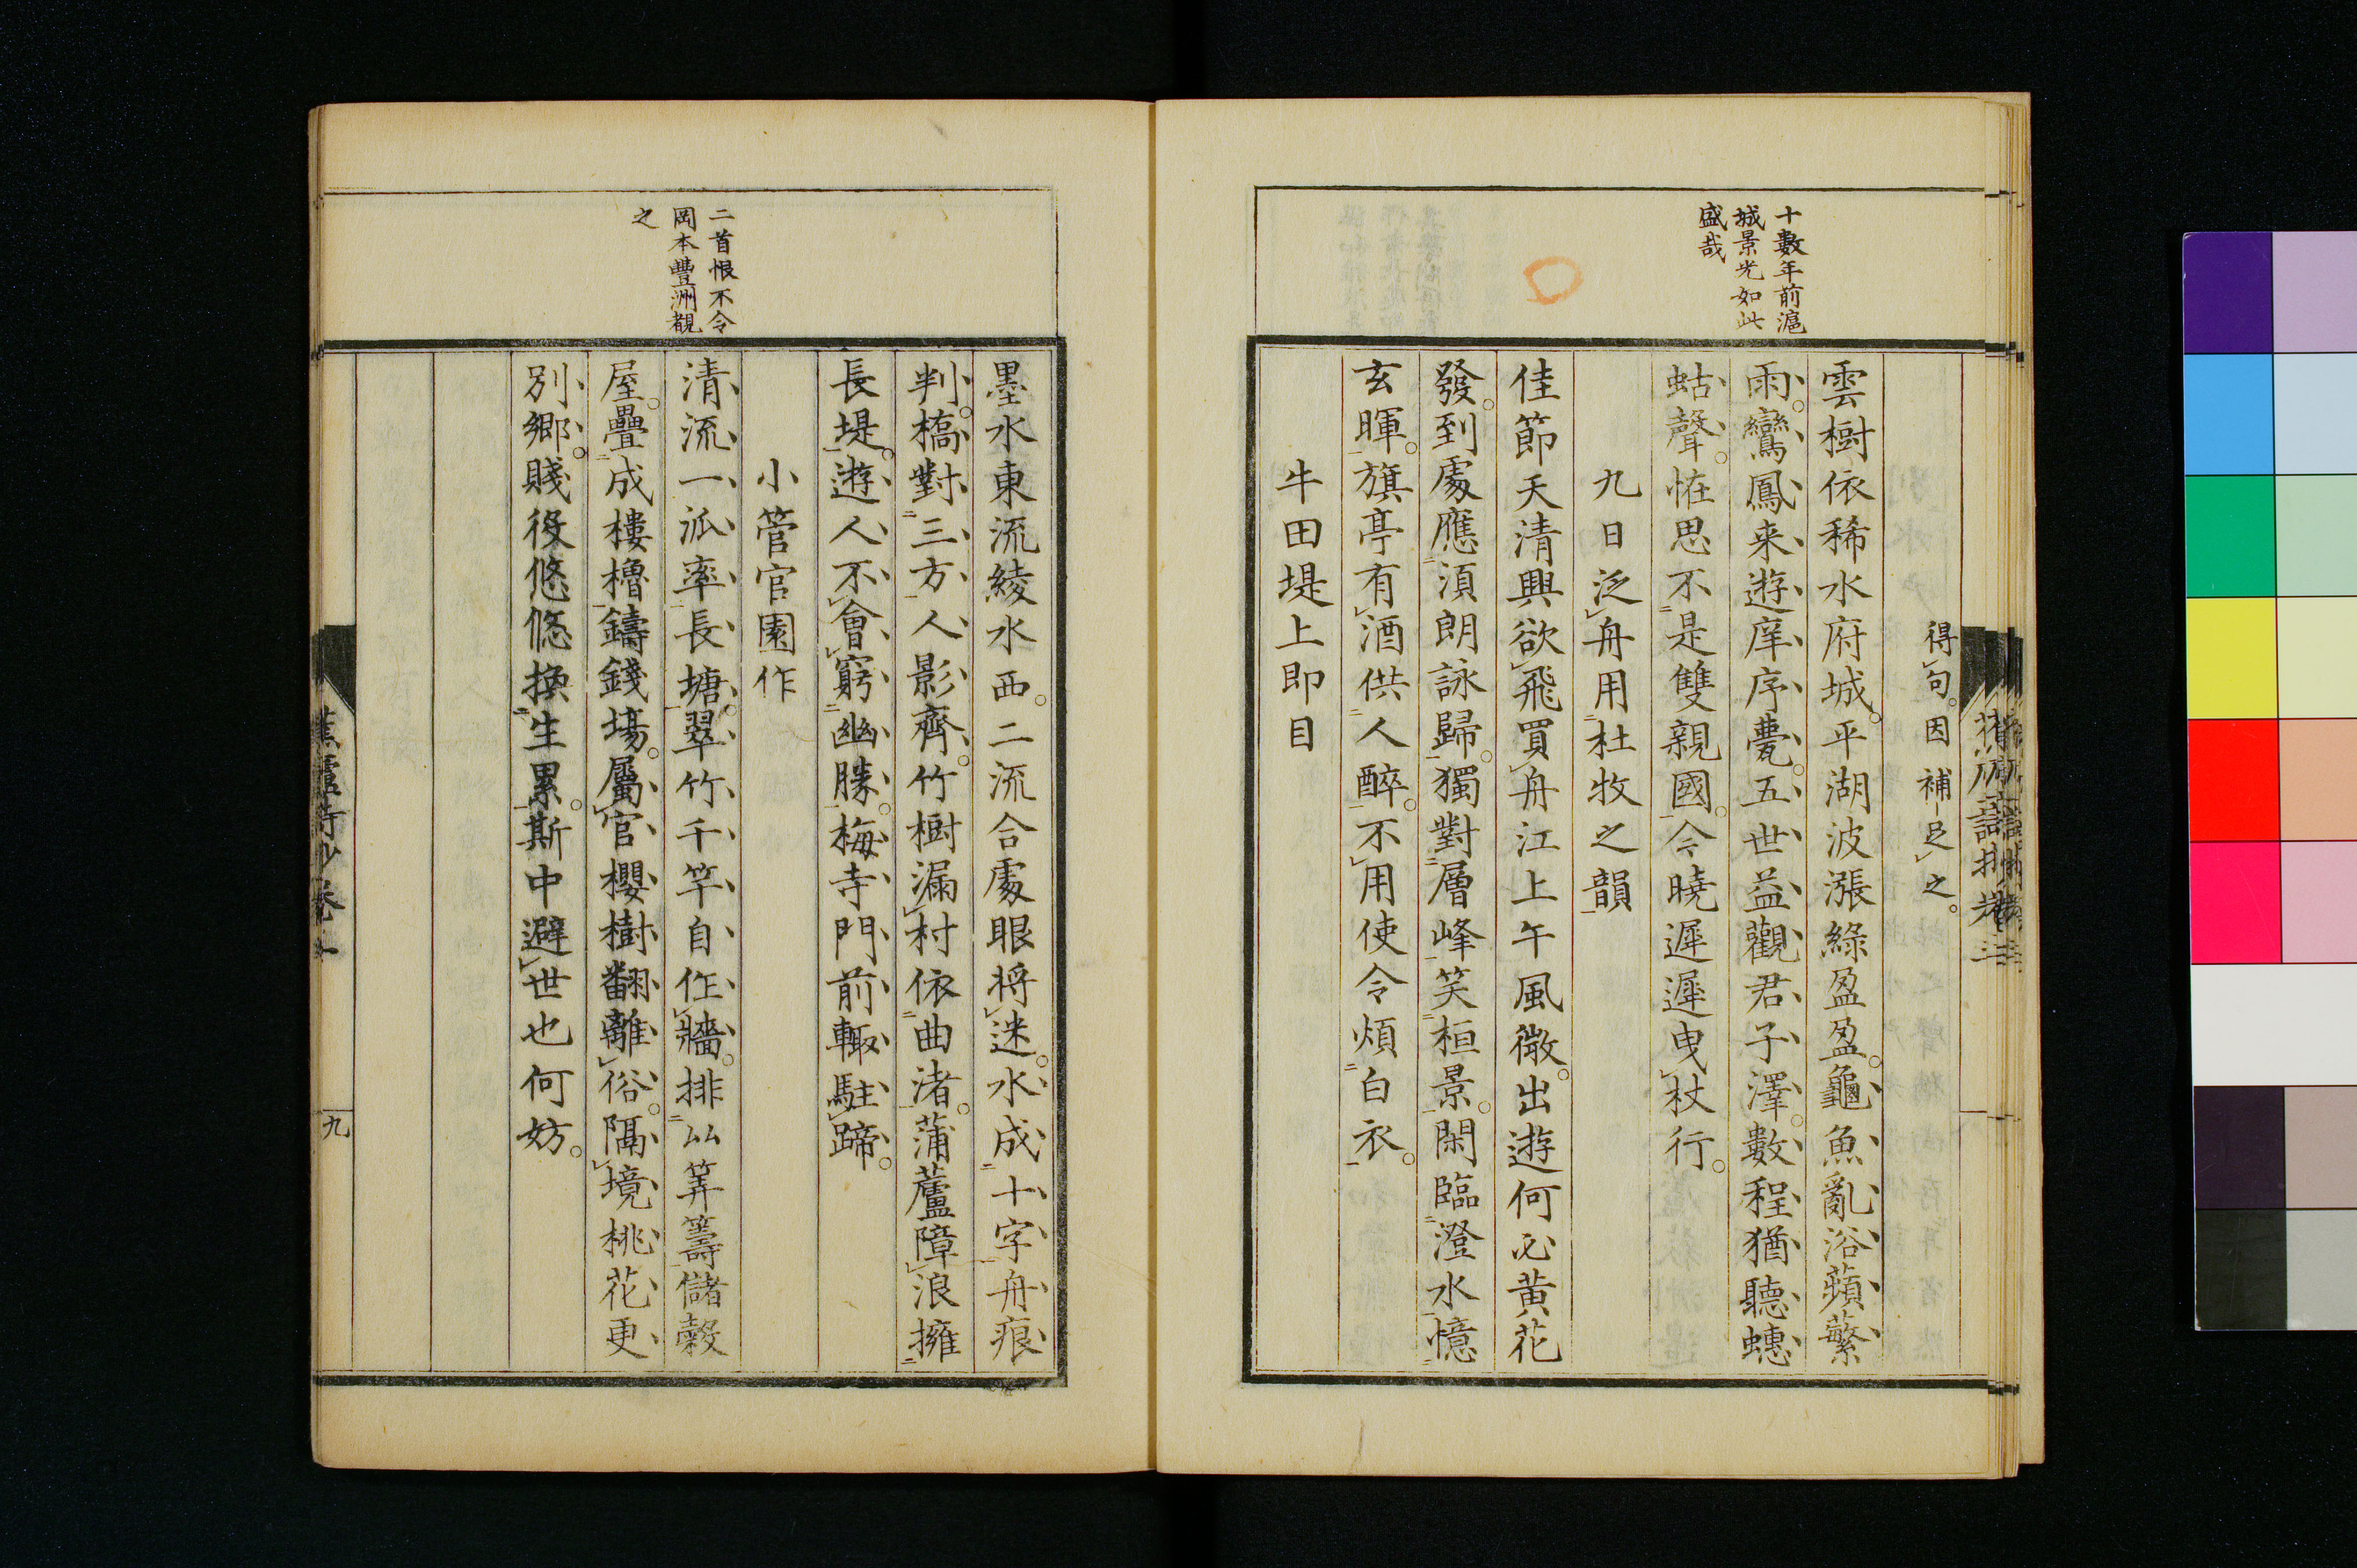 十數年前滬
城景光如此
盛哉
得句因補足之
雲樹依稀水府城平湖波漲綠盈盈龜魚亂浴蘋蘩
雨鸞鳳来遊庠序甍五世益觀君子澤數程猶聽蟪
蛄聲恠思不是雙親國今曉遲遲曳杖行
九日泛舟用杜牧之韻
佳節天清興欲飛買舟江上午風微出遊何必黄花
發到處應須朗詠歸獨對層峰笑桓景閑臨澄水憶
玄暉旗亭有酒供人醉不用使令煩白衣
牛田堤上即目
二首恨不令
岡本豐洲覩
之
墨水東流綾水西二流合處眼将迷水成十字舟痕
判橋對三方人影齊竹樹漏村依曲渚蒲蘆障浪擁
長堤遊人不會窮幽勝梅寺門前輙駐蹄
小菅官園作
清流一派率長塘翠竹千竿自作牆排㕥筭籌儲穀
屋疊成樓櫓鑄錢場屬官櫻樹翻離俗隔境桃花更
別鄉賤役悠悠換生累斯中避世也何妨
九